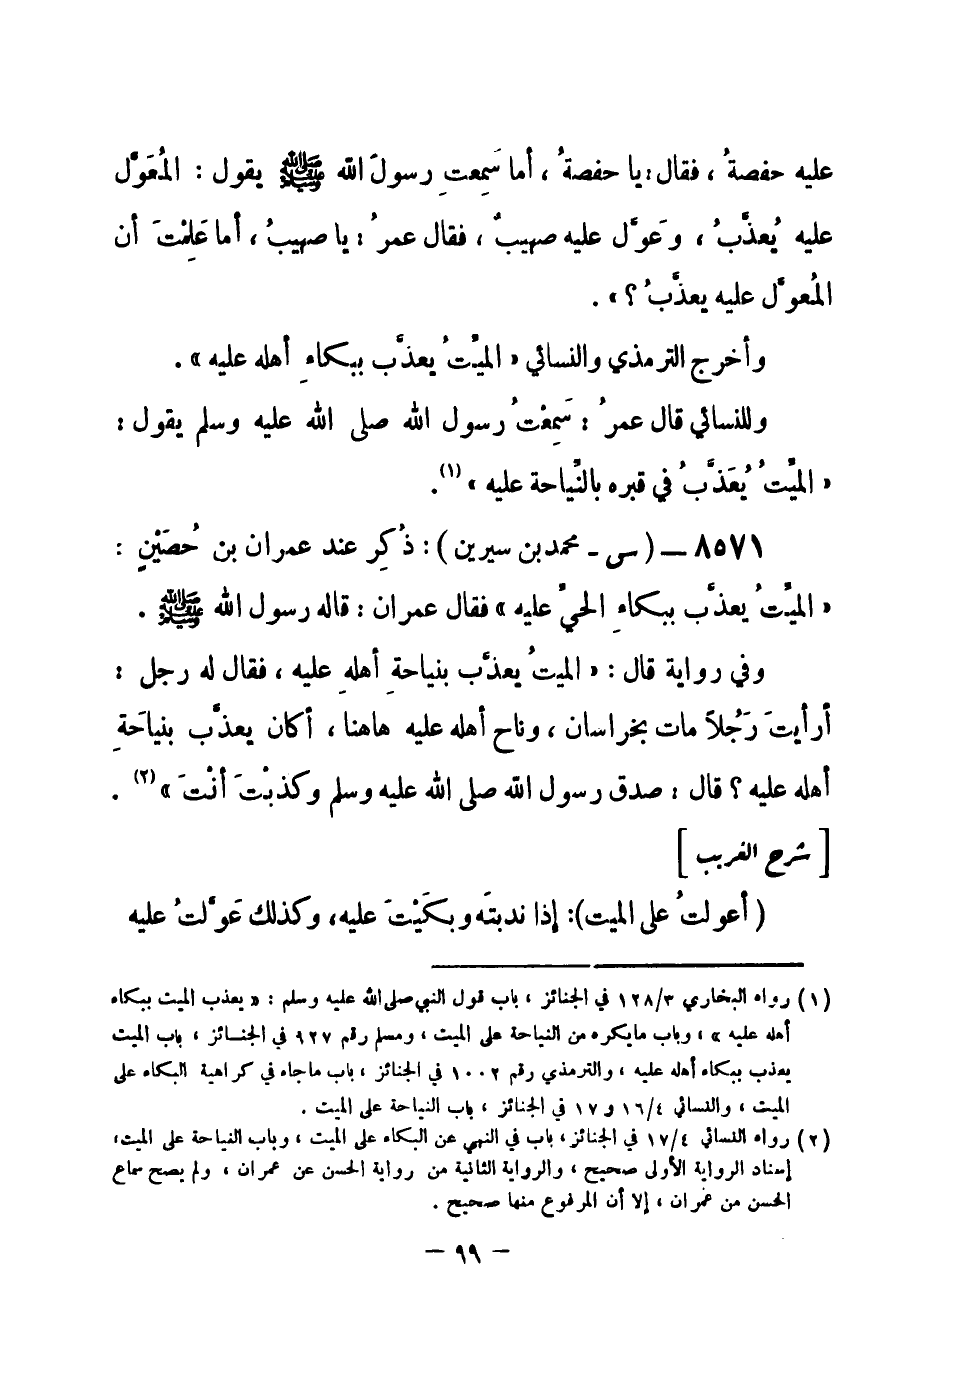 عليه حفصةُ ، فقال : يا حفصةُ ، أما سَمِعتِ رسولَ الله ﷺ يقول : المُعَوَّل
عليه يُعذَّبُ ، وعَوَّل عليه صهيبٌ ، فقال عمرُ : يا صهيبُ ، أما عَلِمْتَ أن
المُعوَّل عليه يعذَّبُ ؟ » .
وأخرج الترمذي والنسائي « الميِّتُ يعذَّب ببكاءِ أهله عليه » .
وللنسائي قال عمرُ : سَمِعْتُ رسول الله صلى الله عليه وسلم يقول :
« الميِّتُ يُعَذَّبُ في قبره بالنِّياحة عليه » (١).
٨٥٧١ — ( سى - محمد بن سيرين ) : ذُكِر عند عمران بن حُصَيْنٍ :
« الميِّتُ يعذَّب ببكاءِ الحيِّ عليه » فقال عمران : قاله رسول الله ﷺ .
وفي رواية قال : « الميتُ يعذَّب بنياحةِ أهلهِ عليه ، فقال له رجل :
أرأيتَ رَجُلاً مات بخراسان ، وناح أهله عليه هاهنا ، أكان يعذَّب بنياحَةِ
أهله عليه ؟ قال : صدق رسول الله صلى الله عليه وسلم وكذبْتَ أنْتَ » (٢) .
[ شرح الغريب ]
( أعولتُ على الميت ) : إذا ندبتَه وبكَيْتَ عليه، وكذلك عَوَّلتُ عليه
(١) رواه البخاري ١٢٨/٣ في الجنائز ، باب قول النبي صلى الله عليه وسلم : « يعذب الميت ببكاء
أهله عليه » ، وباب مايكره من النياحة على الميت ، ومسلم رقم ٩٢٧ في الجنــائز ، باب الميت
يعذب ببكاء أهله عليه ، والترمذي رقم ١٠٠٢ في الجنائز ، باب ماجاء في كراهية البكاء على
الميت ، والنسائي ١٦/٤ و ١٧ في الجنائز ، باب النياحة على الميت .
(٢) رواه النسائي ١٧/٤ في الجنائز ، باب في النهي عن البكاء على الميت ، وباب النياحة على الميت،
إسناد الرواية الأولى صحيح ، والرواية الثانية من رواية الحسن عن عمران ، ولم يصح سماع
الحسن من عمران ، إلا أن المرفوع منها صحيح .
– ٩٩ –